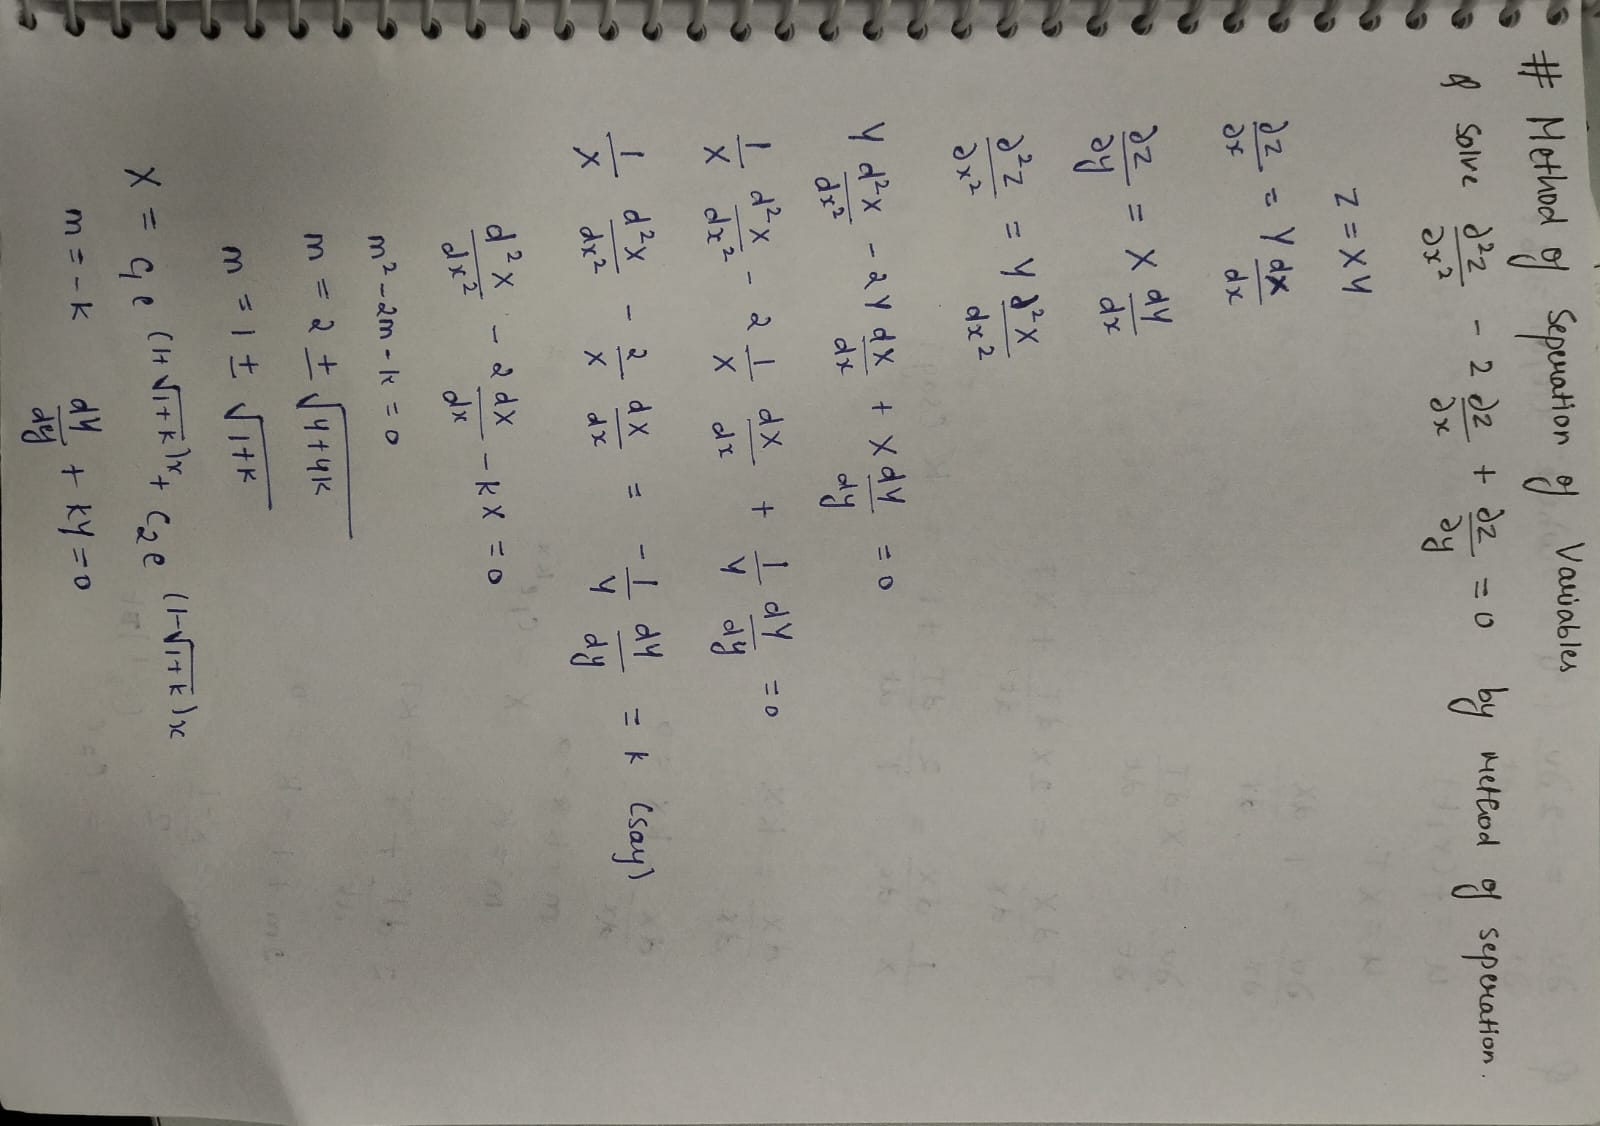 # Method of Seperation of Variables
Q solve ∂²z/∂x² - 2 ∂z/∂x + ∂z/∂y = 0 by method of seperation.
z = XY
∂z/∂x = Y dX/dx
∂z/∂y = X dY/dx
∂²z/∂x² = Y d²X/dx²
Y d²X/dx² - 2Y dX/dx + X dY/dy = 0
1/X d²X/dx² - 2 1/X dX/dx + 1/Y dY/dy = 0
1/X d²X/dx² - 2/X dX/dx = -1/Y dY/dy = k (say)
d²X/dx² - 2 dX/dx - kX = 0
m² - 2m - k = 0
m = 2 ± √4+4k
m = 1 ± √1+k
X = C₁e (1+√1+k)x + C₂e (1-√1+k)x
m = -k dY/dy + kY = 0